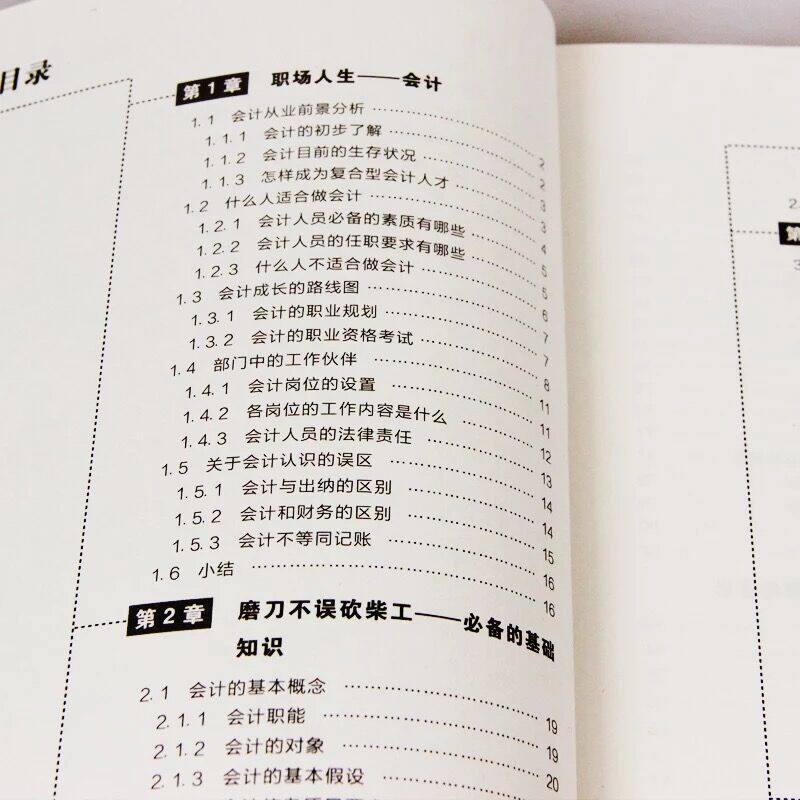 目录
第1章 职场人生——会计
1.1 会计从业前景分析 ………………… 2
1.1.1 会计的初步了解 ………………… 2
1.1.2 会计目前的生存状况 ………………… 3
1.1.3 怎样成为复合型会计人才 ………………… 3
1.2 什么人适合做会计 ………………… 4
1.2.1 会计人员必备的素质有哪些 ………………… 5
1.2.2 会计人员的任职要求有哪些 ………………… 5
1.2.3 什么人不适合做会计 ………………… 6
1.3 会计成长的路线图 ………………… 7
1.3.1 会计的职业规划 ………………… 7
1.3.2 会计的职业资格考试 ………………… 8
1.4 部门中的工作伙伴 ………………… 11
1.4.1 会计岗位的设置 ………………… 11
1.4.2 各岗位的工作内容是什么 ………………… 12
1.4.3 会计人员的法律责任 ………………… 13
1.5 关于会计认识的误区 ………………… 14
1.5.1 会计与出纳的区别 ………………… 14
1.5.2 会计和财务的区别 ………………… 15
1.5.3 会计不等同记账 ………………… 16
1.6 小结 ………………… 16
第2章 磨刀不误砍柴工——必备的基础
知识
2.1 会计的基本概念 ………………… 19
2.1.1 会计职能 ………………… 19
2.1.2 会计的对象 ………………… 20
2.1.3 会计的基本假设 …………………
2.
第
3